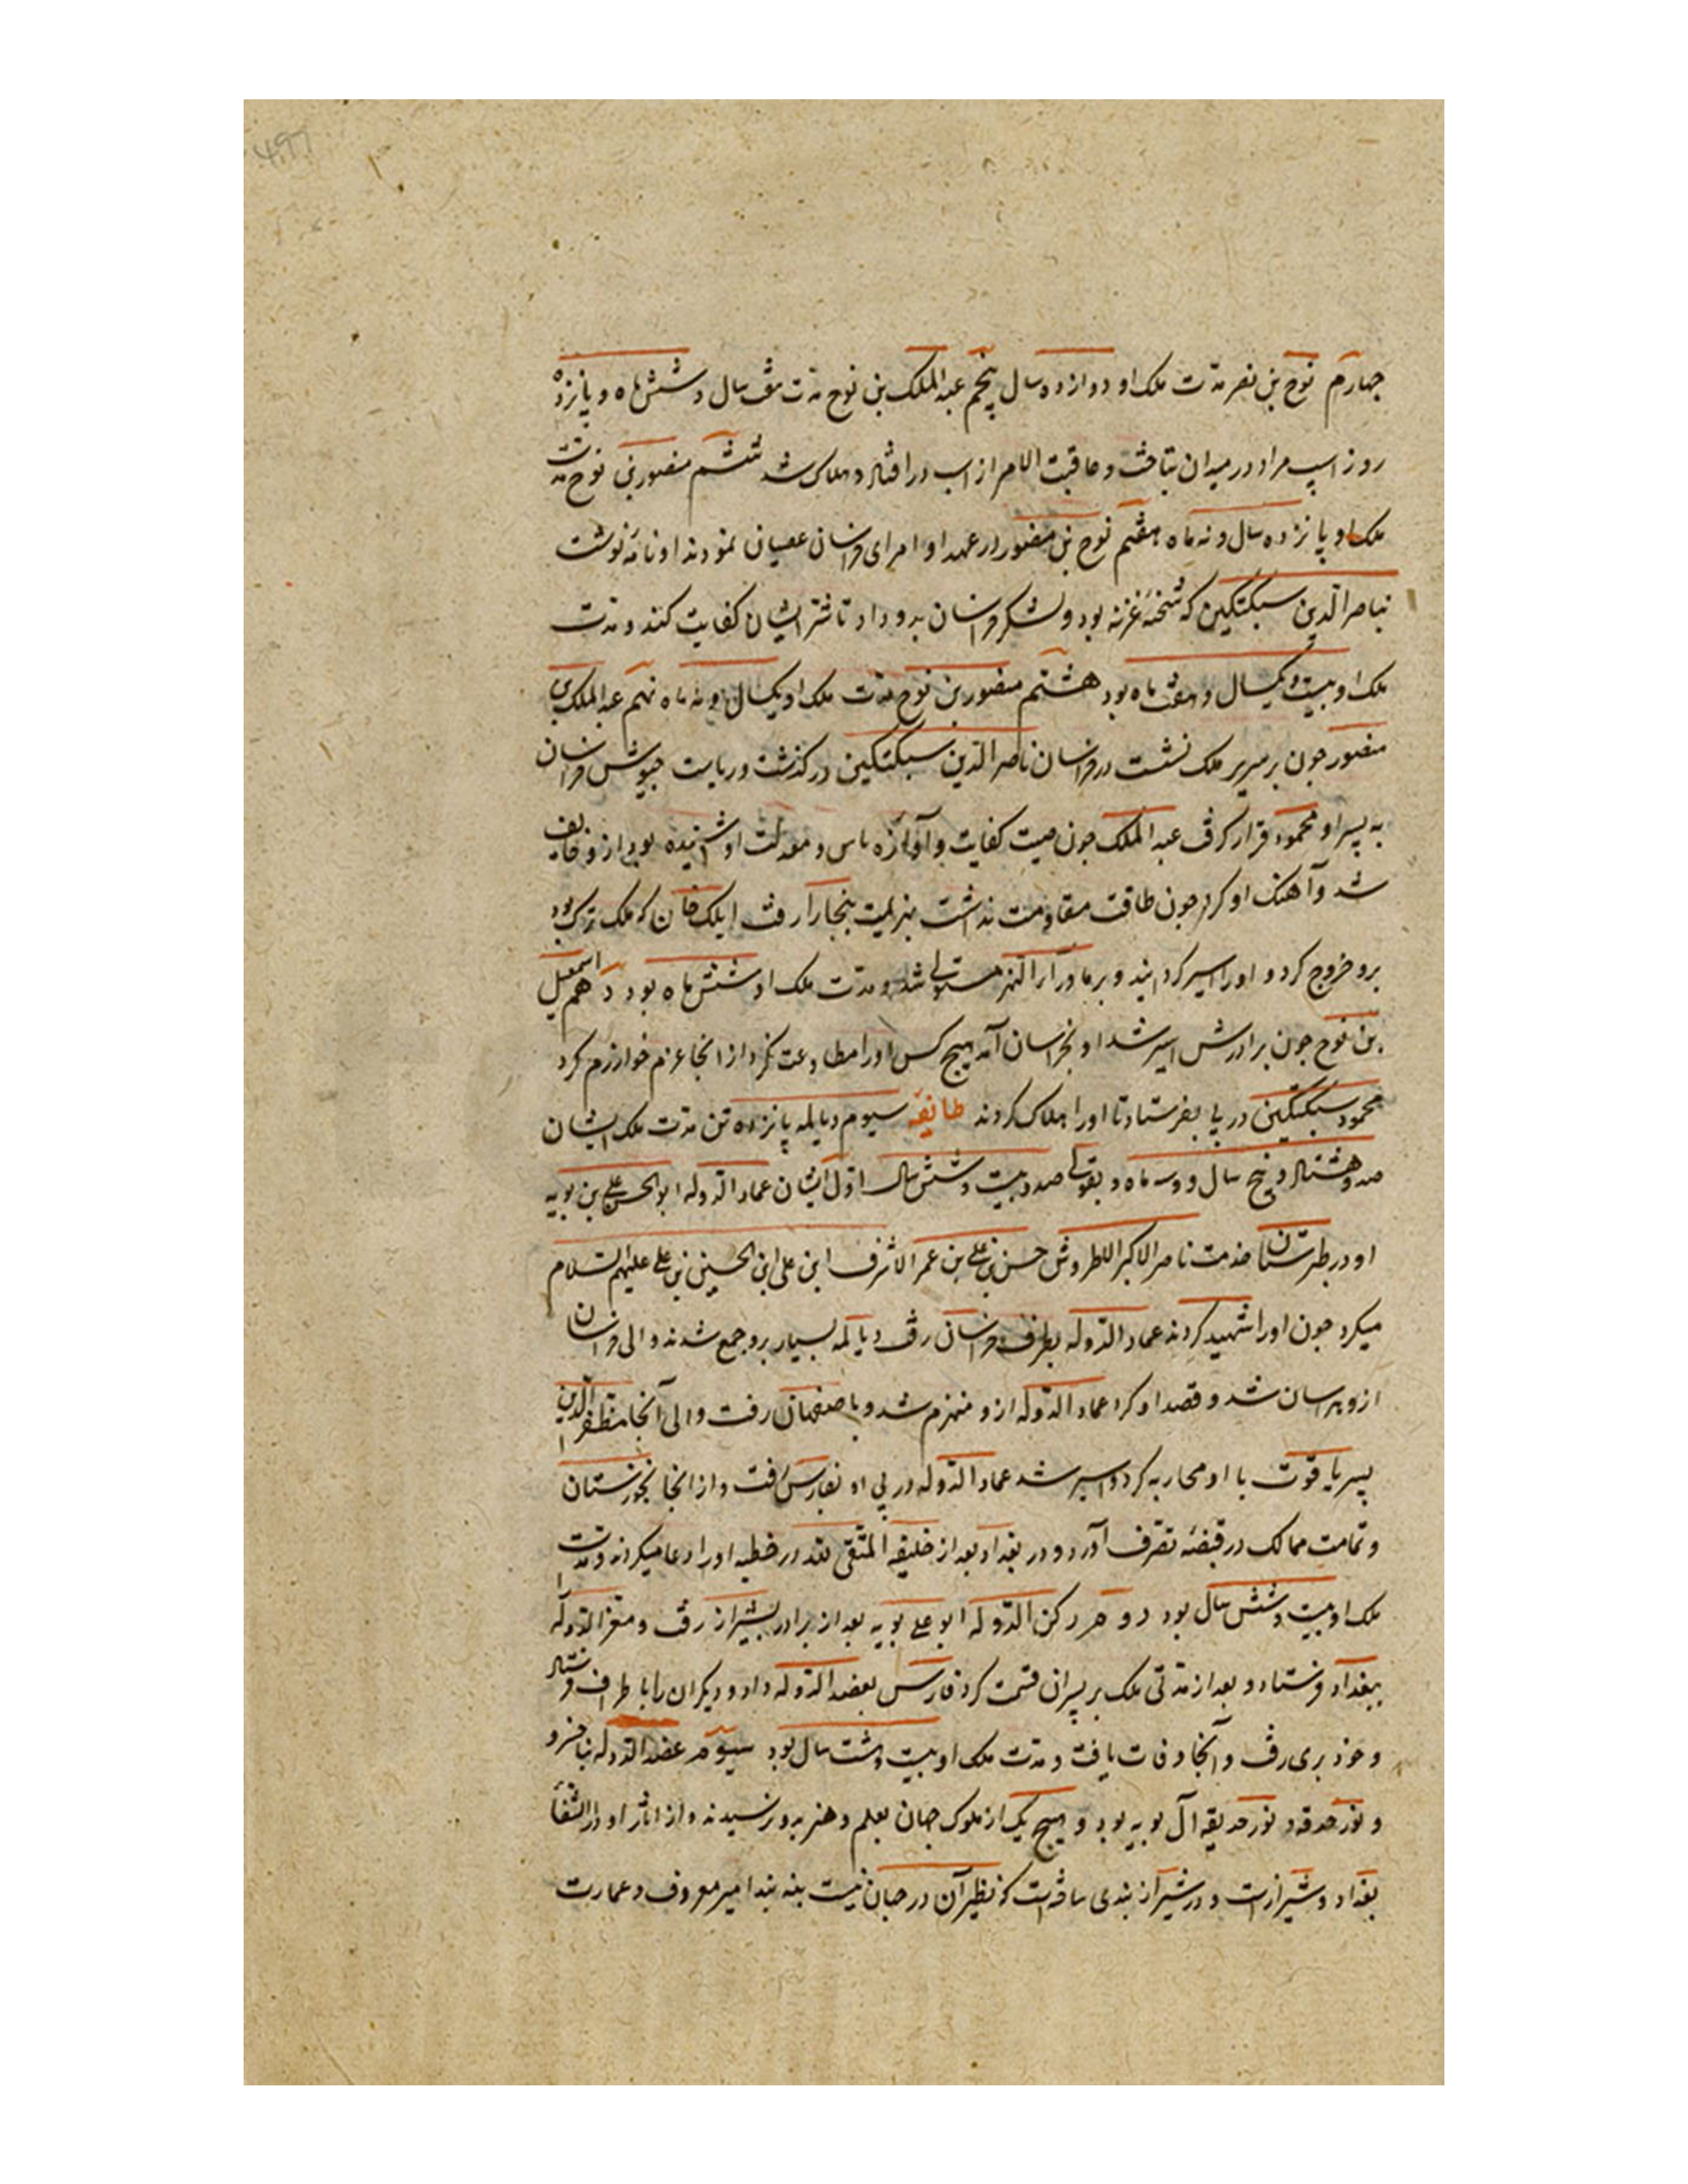 چهارم نوح بن نصر مدت ملک او دوازده سال پنجم عبد الملک بن نوح مدت هفت سال و شش ماه و پانزده
روز اسپ مراد در میدان بتاخت و عاقبت الامر از اسب در افتاد و هلاک شد ششم منصور بن نوح مدت
ملک او پانزده سال و نه ماه هفتم نوح بن منصور در عهد او امرای خراسان عصیان نمودند او نامه نوشت
بناصر الدین سبکتکین که شحنهٔ غزنه بود و لشکر خراسان بدو داد تا شر ایشان کفایت کند و مدت
ملک او بیست و یکسال و هفت ماه بود هشتم منصور بن نوح مدت ملک او یکسال و نه ماه نهم عبد الملک بن
منصور چون بر سریر ملک نشست در خراسان ناصر الدین سبکتکین درگذشت و ریاست جیوش خراسان
به پسر او محمود قرار گرفت عبد الملک چون صیت کفایت و آوازه باس و معدلت او شنیده بود از و خایف
شد و آهنگ او کرد چون طاقت مقاومت نداشت بهزیمت ببخارا رفت ایلک خان که ملک ترک بود
برو خروج کرد و او را اسیر گردانید و بر ماوراء النهر مستولی شد و مدت ملک او شش ماه بود دهم اسمعیل
بن نوح چون برادرش اسیر شد او بخراسان آمد هیچ کس او را مطاوعت نکرد از انجا عزم خوارزم کرد
محمود سبکتکین در پی بفرستاد تا او را هلاک کردند طائفه سیوم دیالمه پانزده تن مدت ملک ایشان
صد و هشتاد و پنج سال و سه ماه و بقولی صد و بیست و شش سال اول ایشان عماد الدوله ابو الحسن علی بن بویه
او در طبرستان خدمت ناصر الاکبر الاطروش حسن بن علی بن عمر الاشرف ابن علی ابن الحسین بن علی علیهم السلام
میکرد چون او را شهید کردند عماد الدوله بطرف خراسان رفت دیالمه بسیار برو جمع شدند والی خراسان
ازو هراسان شد و قصد او کرد عماد الدوله ازو منهزم شد و باصفهان رفت والی آنجا مظفر الدین
پسر یاقوت با او محاربه کرد و اسیر شد عماد الدوله در پی او بفارس رفت و از انجا بخوزستان
و تمامت ممالک در قبضهٔ تصرف آورد و در بغداد بعد از خلیفه المتقی لله در خطبه او را دعا میکردند و مدت
ملک او بیست و شش سال بود دوم رکن الدوله ابو علی بویه بعد از برادر بشیراز رفت و معز الدوله
ببغداد فرستاد و بعد از مدتی ملک بر پسران قسمت کرد فارس بعضد الدوله داد و دیگران را باطراف فرستاد
و خود بری رفت و آنجا وفات یافت و مدت ملک او بیست و هشت سال بود سیوم عضد الدوله فناخسرو
و نور حدقه و نور حدیقه آل بویه بود و هیچ یک از ملوک جهان بعلم و هنر بدو نرسیدند و از اثار او دار الشفاء
بغداد و شیرازست و در شیراز بندی ساخته است که نظیر آن در جهان نیست بنه بند امیر معروف و عمارت